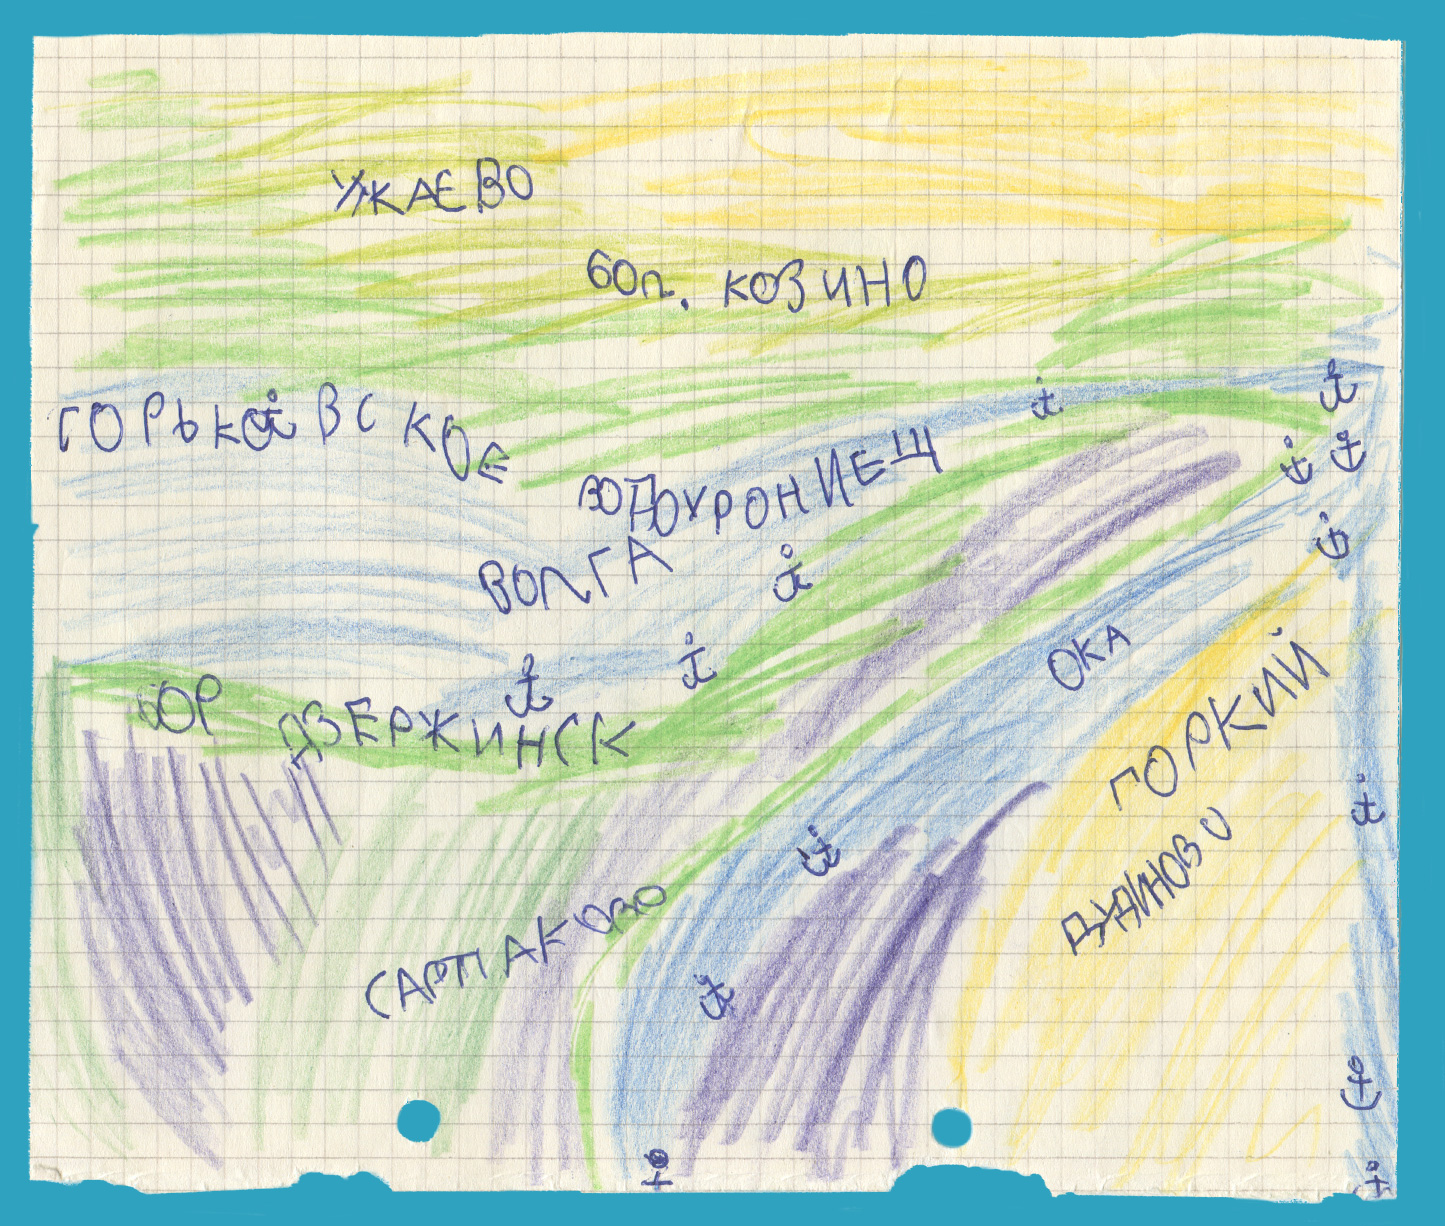 УЖАЕВО
60п. КОЗИНО
ГОРЬКОВСКОЕ
ВОДОХРОНИЕЩ
ВОЛГА
БОР
ДЗЕРЖИНСК
ОКА
ГОРКИЙ
ДУДИНОВО
САРТАКОВО